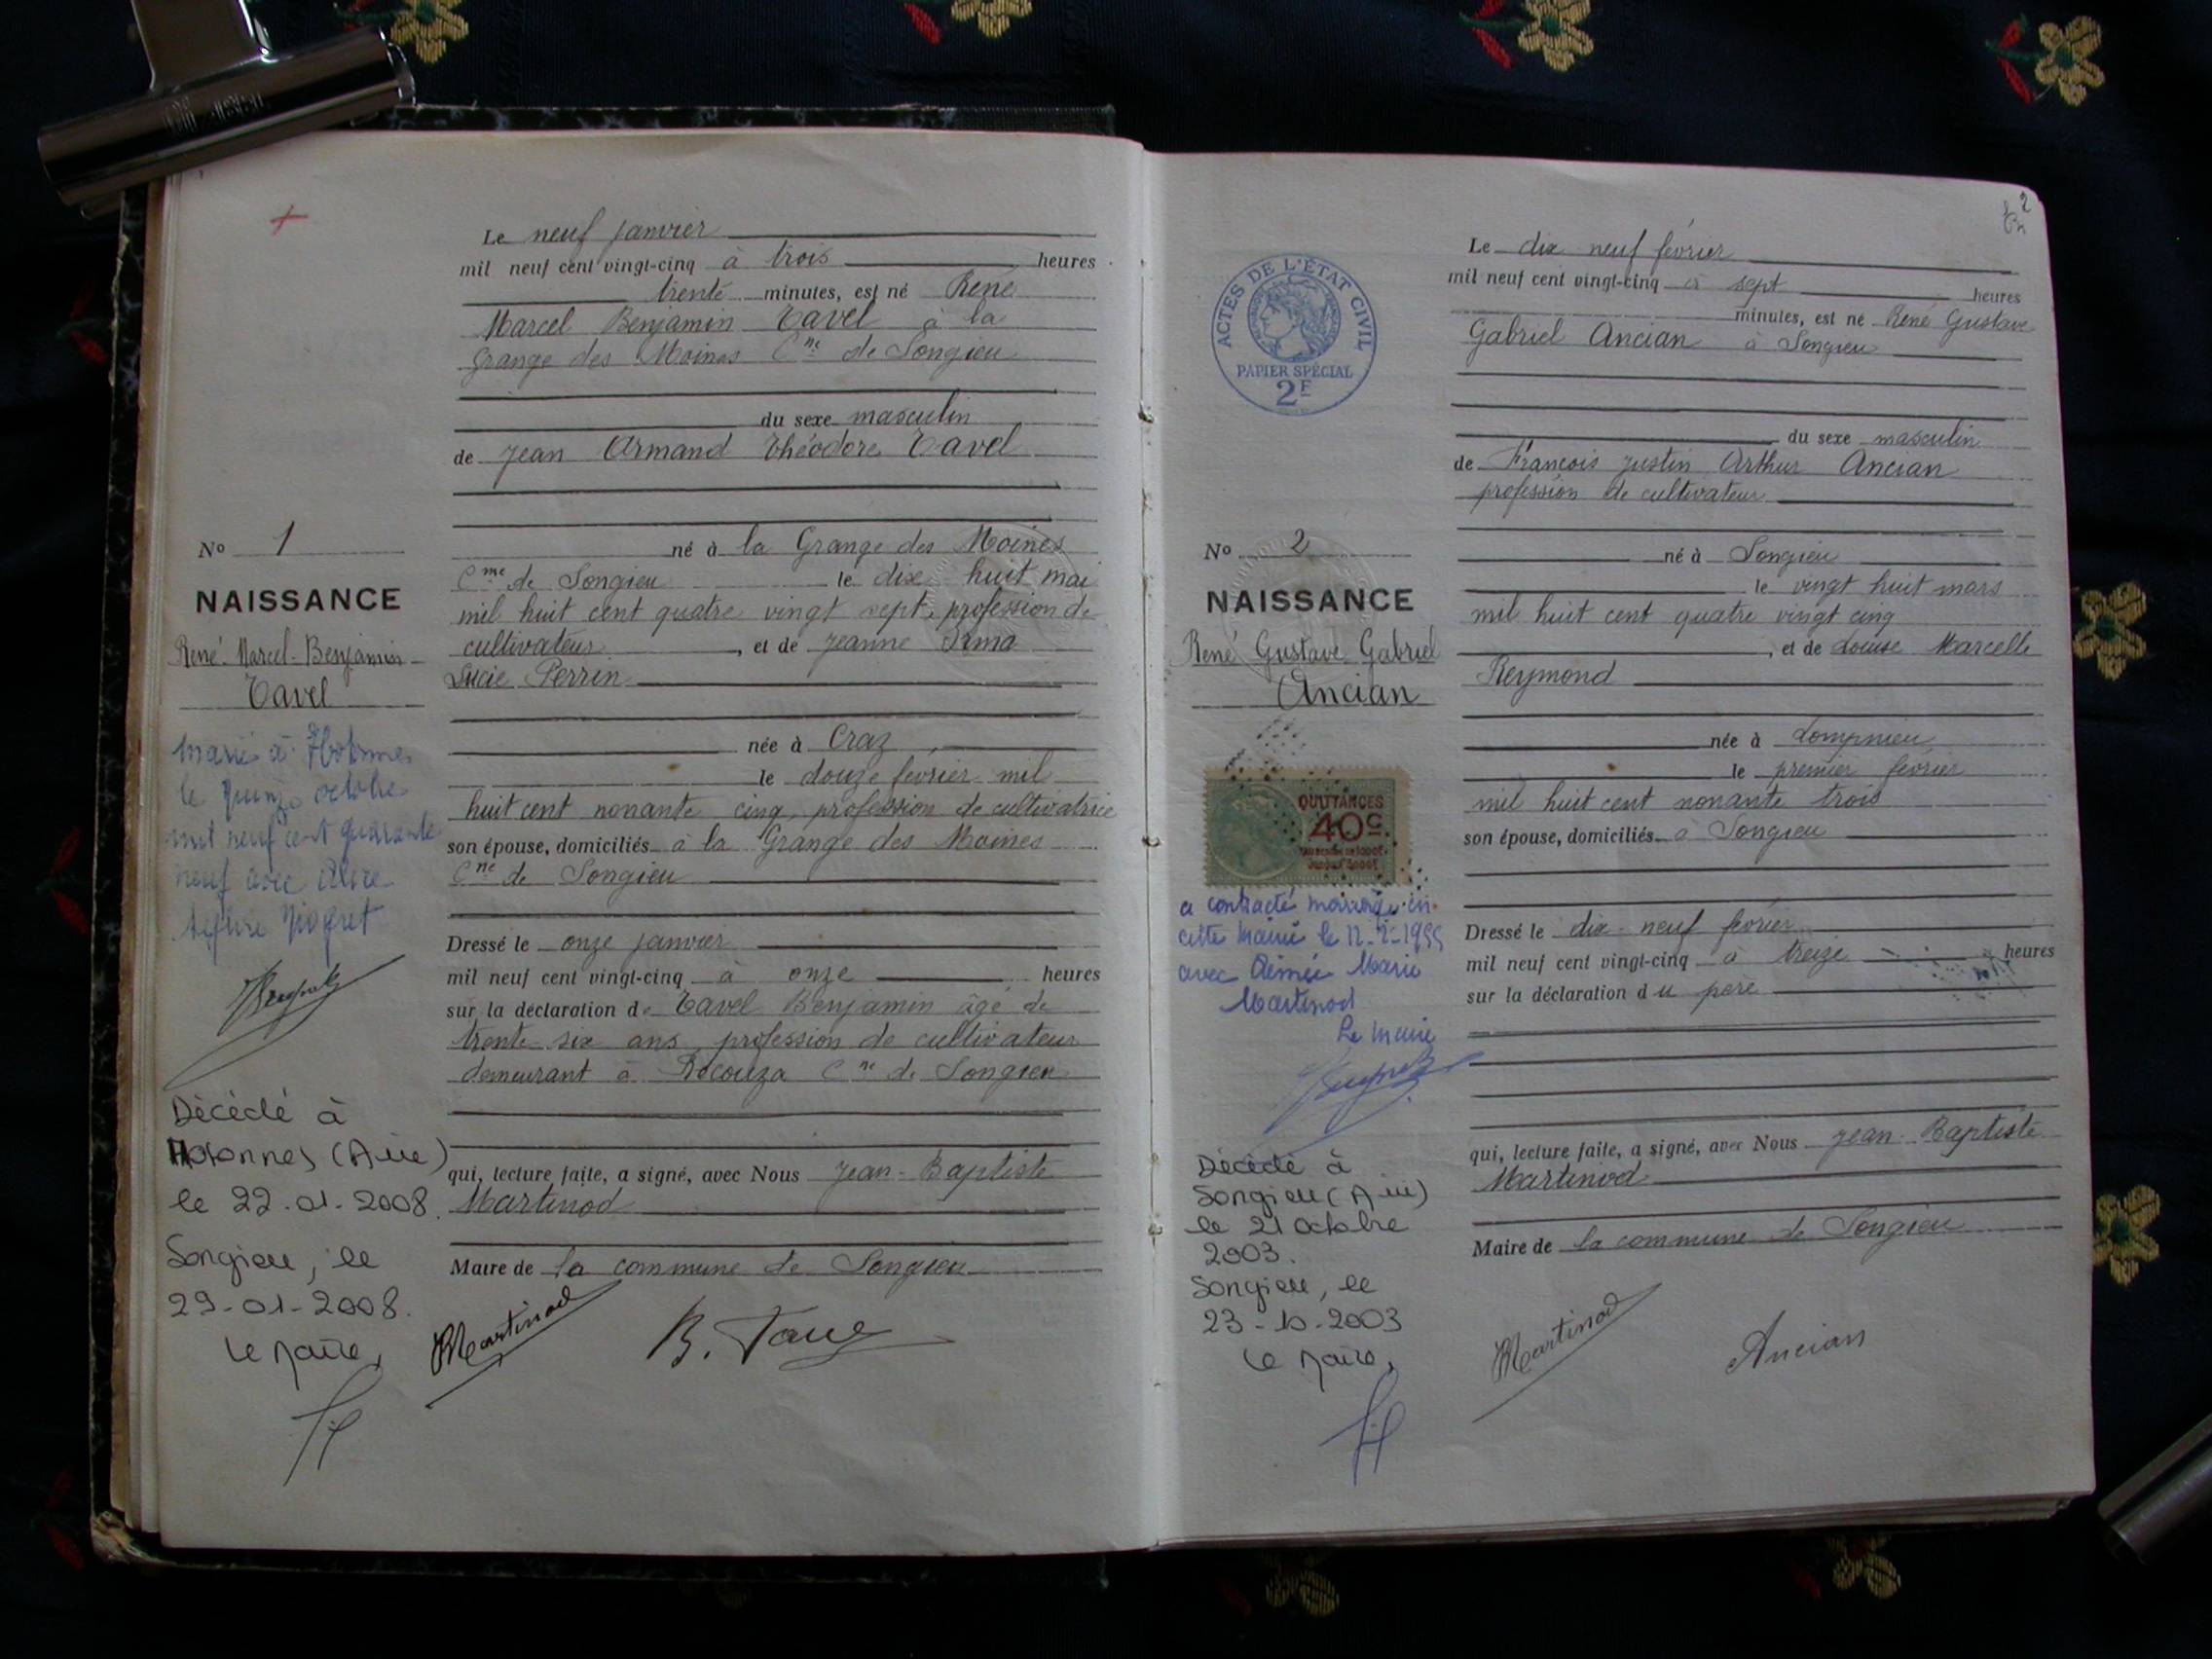 Le neuf janvier
mil neuf cent vingt-cinq à trois heures
trente minutes, est né René
Marcel Benjamin Tavel à la
Grange des Moines Cne de Songieu
du sexe masculin
de Jean Armand Théodore Tavel
né à la Grange des Moines
Cme de Songieu le dix huit mai
mil huit cent quatre vingt sept, profession de
cultivateur, et de Jeanne Irma
Lucie Perrin
née à Craz,
le douze fevrier mil
huit cent nonante cinq, profession de cultivatrice
son épouse, domiciliés à la Grange des Moines
Cne de Songieu
Dressé le onze janvier
mil neuf cent vingt-cinq à onze heures
sur la déclaration de Tavel Benjamin âgé de
trente six ans, profession de cultivateur
demeurant à Cne de Songieu
qui, lecture faite, a signé, avec Nous Jean-Baptiste
Martinod
Maire de la commune de Songieu
Martinod
B. Tavel
No 1
NAISSANCE
René-Marcel-Benjamin
Tavel
Marié à Hotonnes
le quinze octobre
mil neuf cent quarante
neuf avec
Décédé à
Hotonnes (Ain)
le 22-01-2008.
Songieu, le
29-01-2008.
Le Maire,
2
Le dix neuf février
mil neuf cent vingt-cinq à sept heures
minutes, est né René Gustave
Gabriel Ancian à Songieu
du sexe masculin
de François Justin Arthur Ancian
profession de cultivateur
né à Songieu
le vingt huit mars
mil huit cent quatre vingt cinq
, et de Louise Marcelle
Reymond
née à Lompnieu
le premier février
mil huit cent nonante trois
son épouse, domiciliés à Songieu
Dressé le dix-neuf février
mil neuf cent vingt-cinq à treize heures
sur la déclaration du père
qui, lecture faite, a signé, avec Nous Jean-Baptiste
Martinod
Maire de la commune de Songieu
Martinod
Ancian
ACTES DE L'ÉTAT CIVIL
PAPIER SPÉCIAL
2F
No 2
NAISSANCE
René Gustave Gabriel
Ancian
QUITTANCES
40C
a contracté mariage en
cette mairie le
avec Aimée Marie
Martinod
Le Maire
Décédé à
Songieu (Ain)
le 21 octobre
2003.
Songieu, le
23-10-2003
Le Maire,